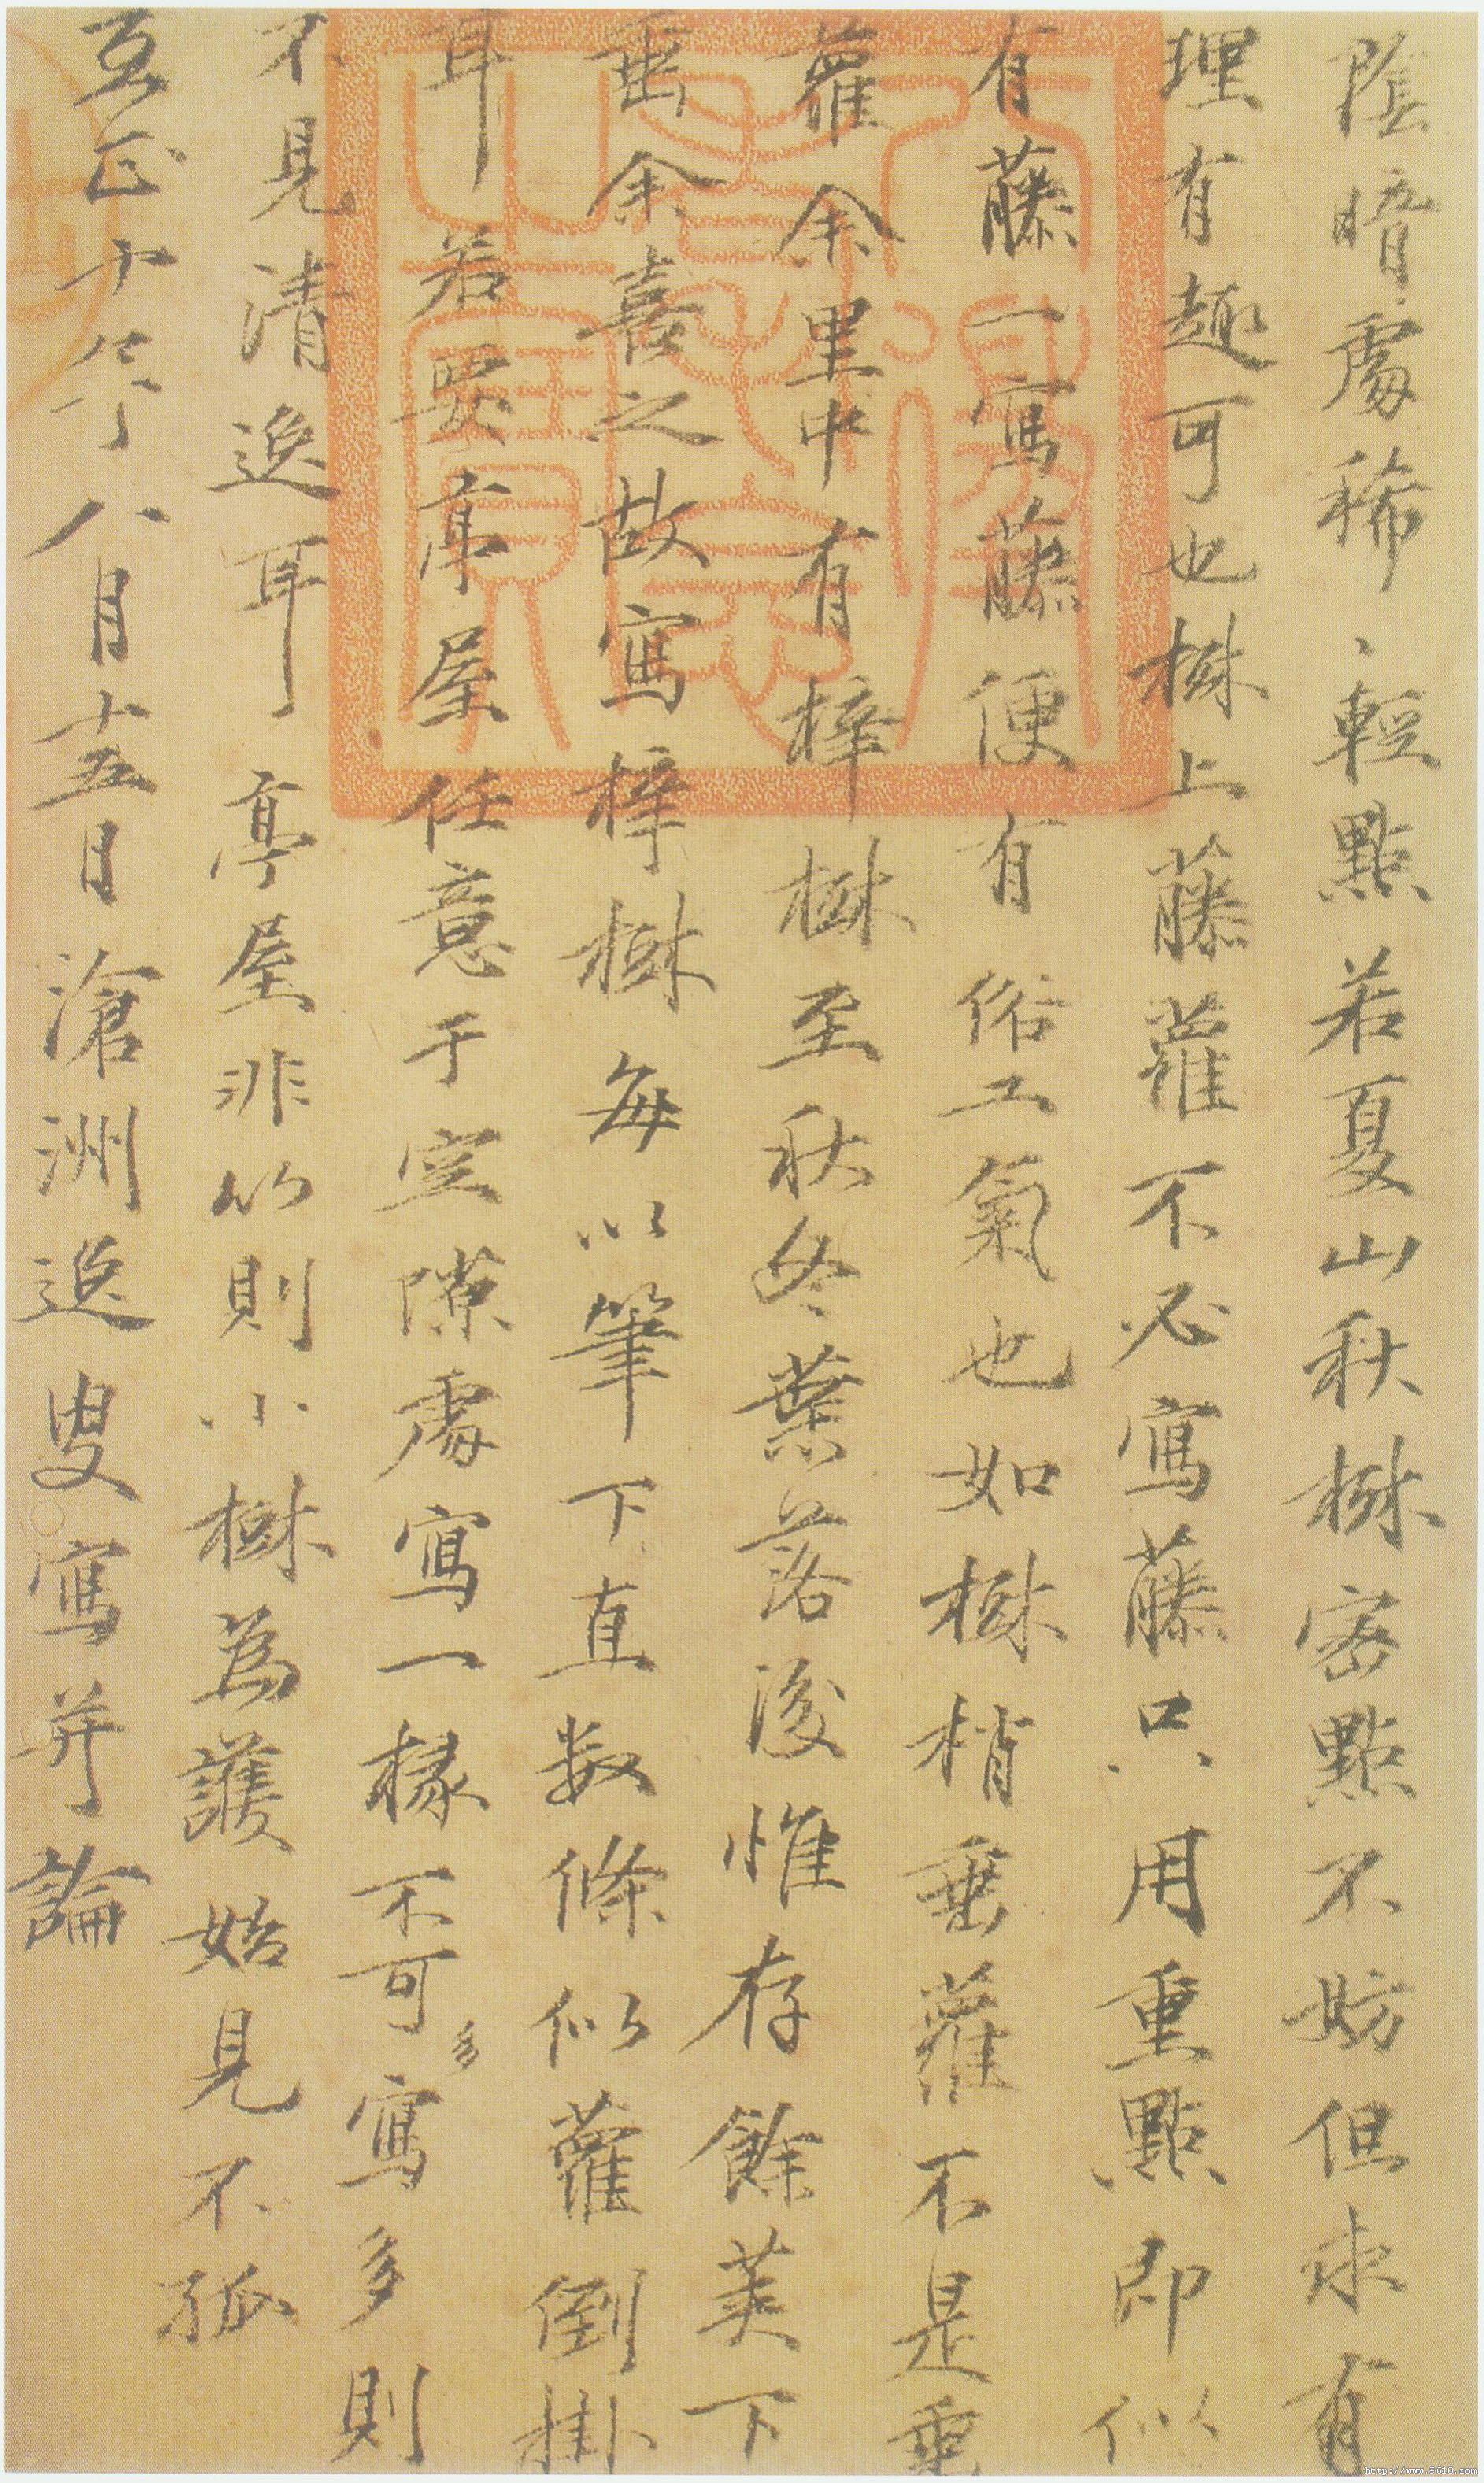 陰暗處稀、輕點若夏山秋樹密點不妨但求有
理有趣可也樹上藤蘿不必寫藤只用重點即似
有藤一寫藤便有俗工氣也如樹梢垂蘿不是垂
蘿余里中有梓樹至秋冬葉落後惟存餘莢下
垂余喜之故寫梓樹每以筆下直数條似蘿倒掛
耳若要亭屋任意于空隙處寫一椽不可多寫多則
不見清逸耳亭屋非竹則小樹為護始見不孤
至正十年八月十五日滄洲逸叟寫并論
http://www.9610.com